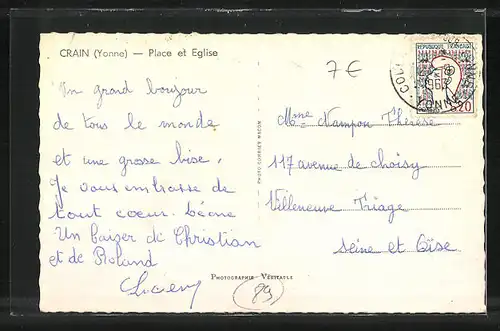 CRAIN (Yonne) — Place et Eglise
7 €
Un grand bonjour
de tous le monde
et une grosse bise.
Je vous embrasse de
tout coeur. Léone
Un baiser de Christian
et de Roland
Mme Nampon Thérèse
117 avenue de choisy
Villeneuve Triage
Seine et Oise
REPUBLIQUE FRANCAISE
0,20
1963
YONNE
PHOTOGRAPHIE VÉRITABLE
89